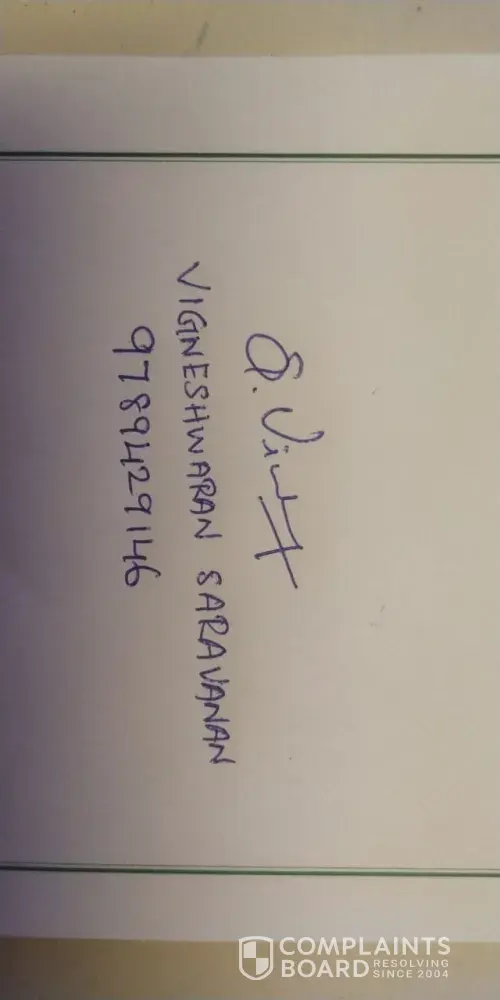 VIGNESHWARAN SARAVANAN
9789429146
COMPLAINTS
BOARD RESOLVING
SINCE 2004